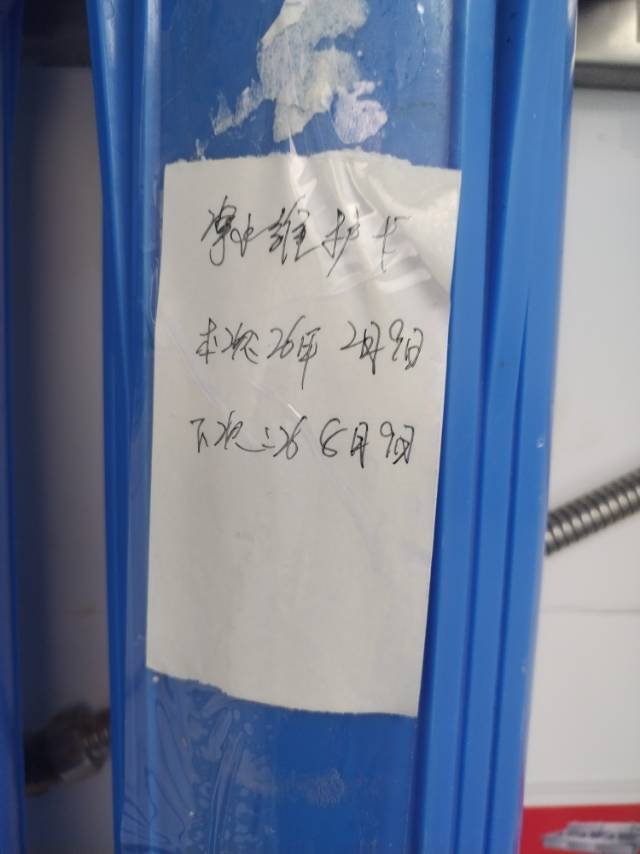 净水维护卡
本次26年 2月9日
下次:26 8月9日